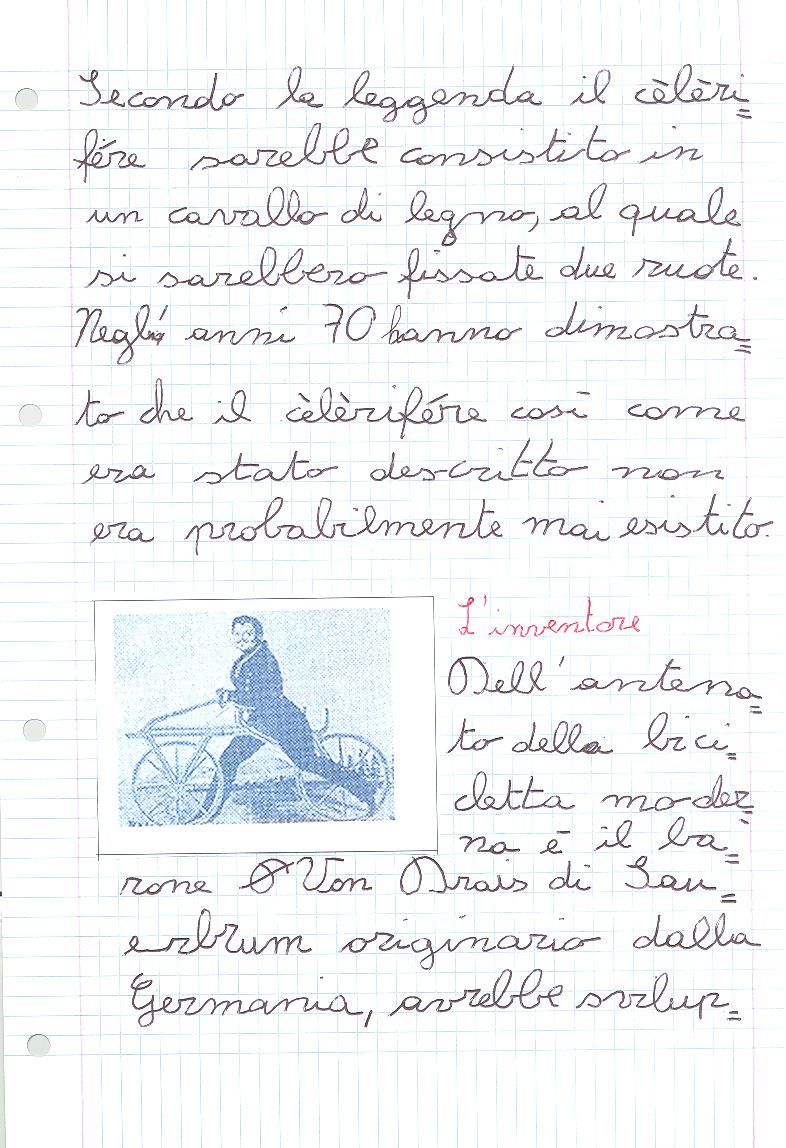 Secondo la leggenda il cèlèri=
fére sarebbe consistito in
un cavallo di legno, al quale
si sarebbero fissate due ruote.
Negli anni 70 hanno dimostra=
to che il cèlèrifére così come
era stato descritto non
era probabilmente mai esistito.
L'inventore
Dell'antena=
to della bici=
cletta moder=
na è il ba=
rone Von Drais di Sau=
erbrum originario dalla
Germania, avrebbe svilup=